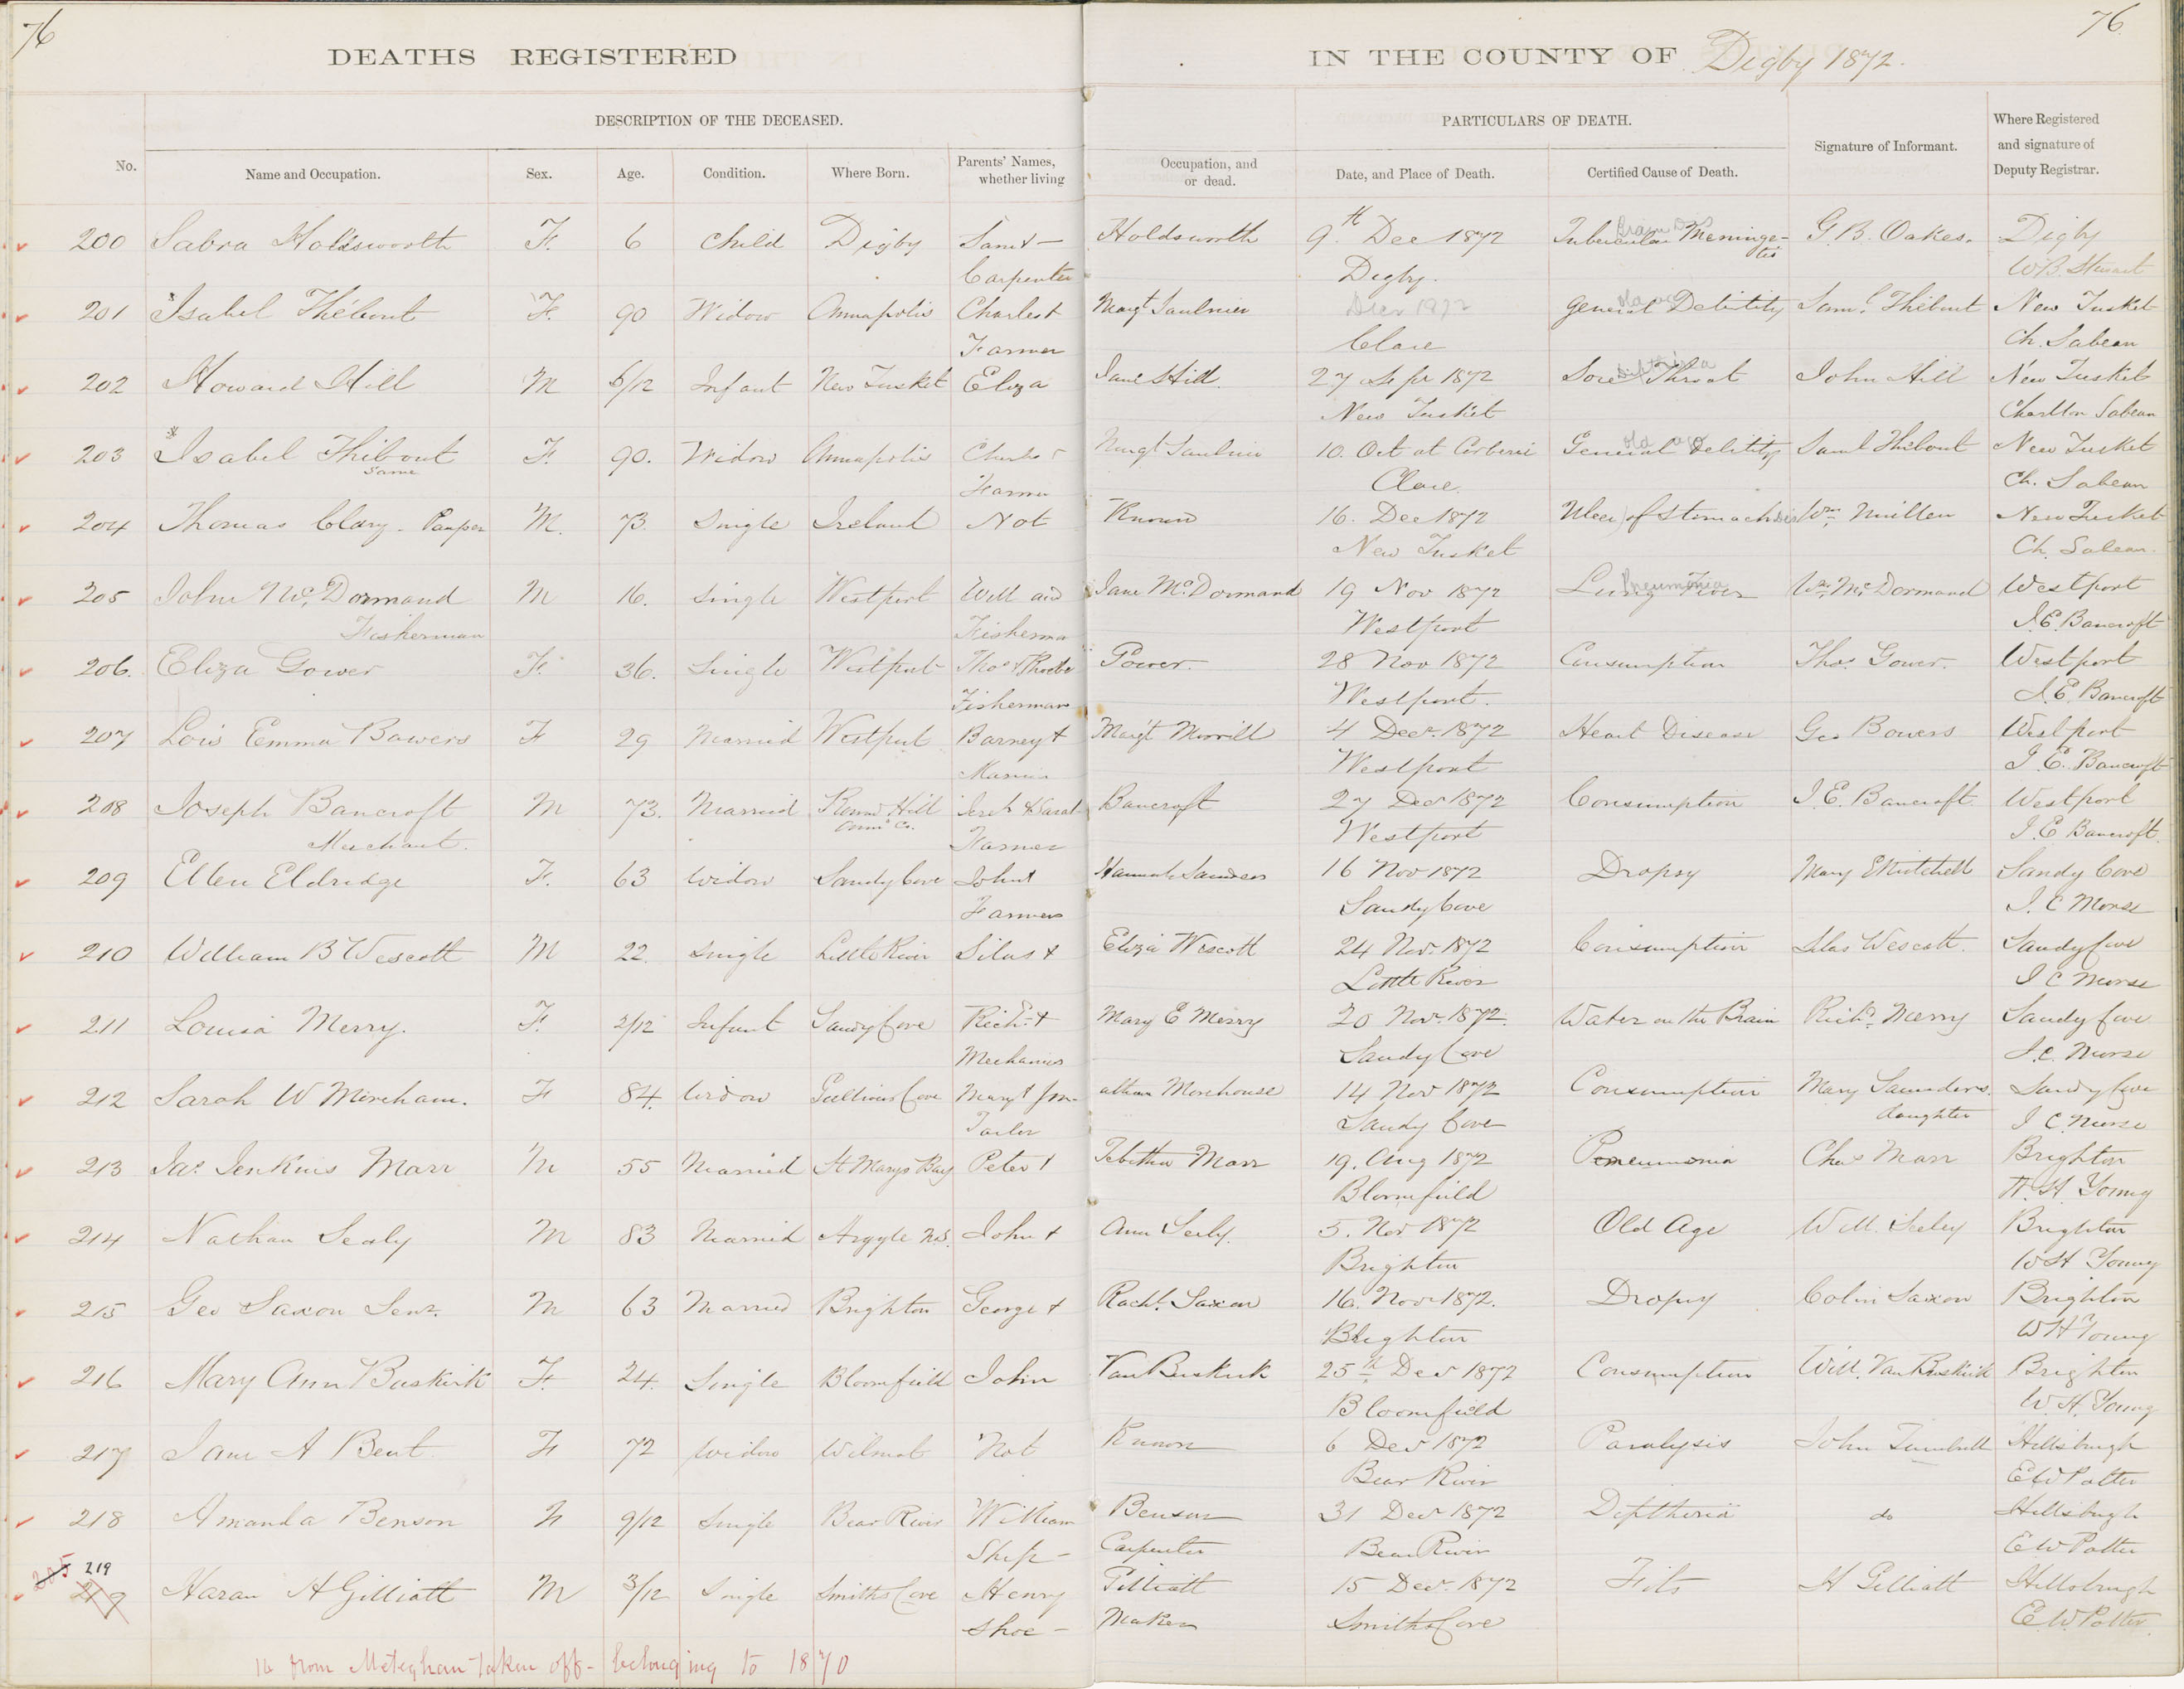 76
76
DEATHS REGISTERED IN THE COUNTY OF Digby 1872.
DESCRIPTION OF THE DECEASED. PARTICULARS OF DEATH. Where Registered
No. Name and Occupation. Sex. Age. Condition. Where Born. Parents' Names, Occupation, and Date, and Place of Death. Certified Cause of Death. Signature of Informant. and signature of
whether living or dead. Deputy Registrar.
200 Sabra Holdsworth F. 6 Child Digby Saml + Holdsworth 9th Dec 1872 Tubercular Meninge- G. B. Oakes. Digby
Carpenter Digby. tis W.B. Stewart
201 Isabel Thibout F. 90 Widow Annapolis Charles + Margt Saulnier Dec 1872 old age General Debility Saml Thibout New Tusket
Farmer Clare Ch. Sabean
202 Howard Hill M 6/12 Infant New Tusket Eliza Jane Hill. 27 Sepr 1872 Sore Throat John Hill New Tusket
New Tusket Charlton Sabean
203 Isabel Thibout F. 90. Widow Annapolis Charles + Margt Saulnier 10. Oct at Corberie old age General Debility Saml Thibout New Tusket
Same Farmer Clare. Ch. Sabean
204 Thomas Clary - Pauper M. 73. Single Ireland Not Known 16. Dec 1872 Ulcer of Stomach Wm New Tusket
New Tusket Ch. Sabean.
205 John McDormand M 16. Single Westport Will and Jane McDormand 19 Nov 1872 Pneumonia Lung Fever Wm McDormand Westport
Fisherman Fisherman Westport J.E. Bancroft
206. Eliza Gower F. 36. Single Westport Thos + Phoebe Gower. 28 Nov 1872 Consumption Thos. Gower. Westport
Fisherman Westport. J.E. Bancroft
207 Lois Emma Bowers F 29 Married Westport Barney + Margt Morrill 4 Decr. 1872 Heart Disease Geo Bowers Westport
Westport J. E. Bancroft
208 Joseph Bancroft M 73. Married Round Hill Jerh & Sarah Bancroft 27 Decr 1872 Consumption J.E. Bancroft Westport
Merchant. Anns Co. Farmer Westport J.E Bancroft.
209 Ellen Eldridge F. 63 Widow Sandy Cove John + Hannah Saunders 16 Nov 1872 Dropsy Mary E Mitchell Sandy Cove
Farmers Sandy Cove J. C Morse
210 William B Wescott M 22. Single Little River Silas + Eliza Wescott 24 Nov. 1872 Consumption Silas Wescott. Sandy Cove
Little River J C Morse
211 Louisa Merry. F. 2/12 Infant Sandy Cove Richd + Mary E Merry 20 Nov. 1872. Water on the Brain Richd Merry Sandy Cove
Mechanics Sandy Cove J.C. Morse
212 Sarah W Moreham. F 84. Widow Gullivers Cove Mary + Jon- athan Morehouse 14 Nov 1872 Consumption Mary Saunders. Sandy Cove
Tailor Sandy Cove daughter J C. Morse
213 Jas. Jenkins Marr M 55 Married St Marys Bay Peter + Tebitha Marr 19. Aug 1872 Pneumonia Chas Marr Brighton
Bloomfield W.H. Young
214 Nathan Sealy M 83 Married Argyle N.S. John + Ann Seely. 5. Nov 1872 Old Age Will. Seeley Brighton
Brighton W H Young
215 Geo Saxon Senr. M 63 Married Brighton George + Rachl. Saxon 16. Nov 1872. Dropsy Colin Saxon Brighton
Brighton W H Young
216 Mary Ann Buskirk F. 24. Single Bloomfield John Van Buskirk 25th Decr 1872 Consumption Will. Van Buskirk Brighton
Bloomfield W. H. Young
217 Jane A Bent F 72 Widow Wilmot Not Known 6 Decr 1872 Paralysis John Turnbull Hillsburgh
Bear River E W Potter
218 Amanda Benson F 9/12 Single Bear River William Benson 31 Decr 1872 Diptheria do Hillsburgh
Ship - Carpenter Bear River E W Potter
305 219
219 Haran H Gilliatt M 3/12 Single Smiths Cove Henry Gilliatt 15 Decr. 1872 Fits H Gilliatt Hillsburgh
Shoe - Maker Smiths Cove E.W. Potter.
16 from Meteghan taken off - belonging to 1870